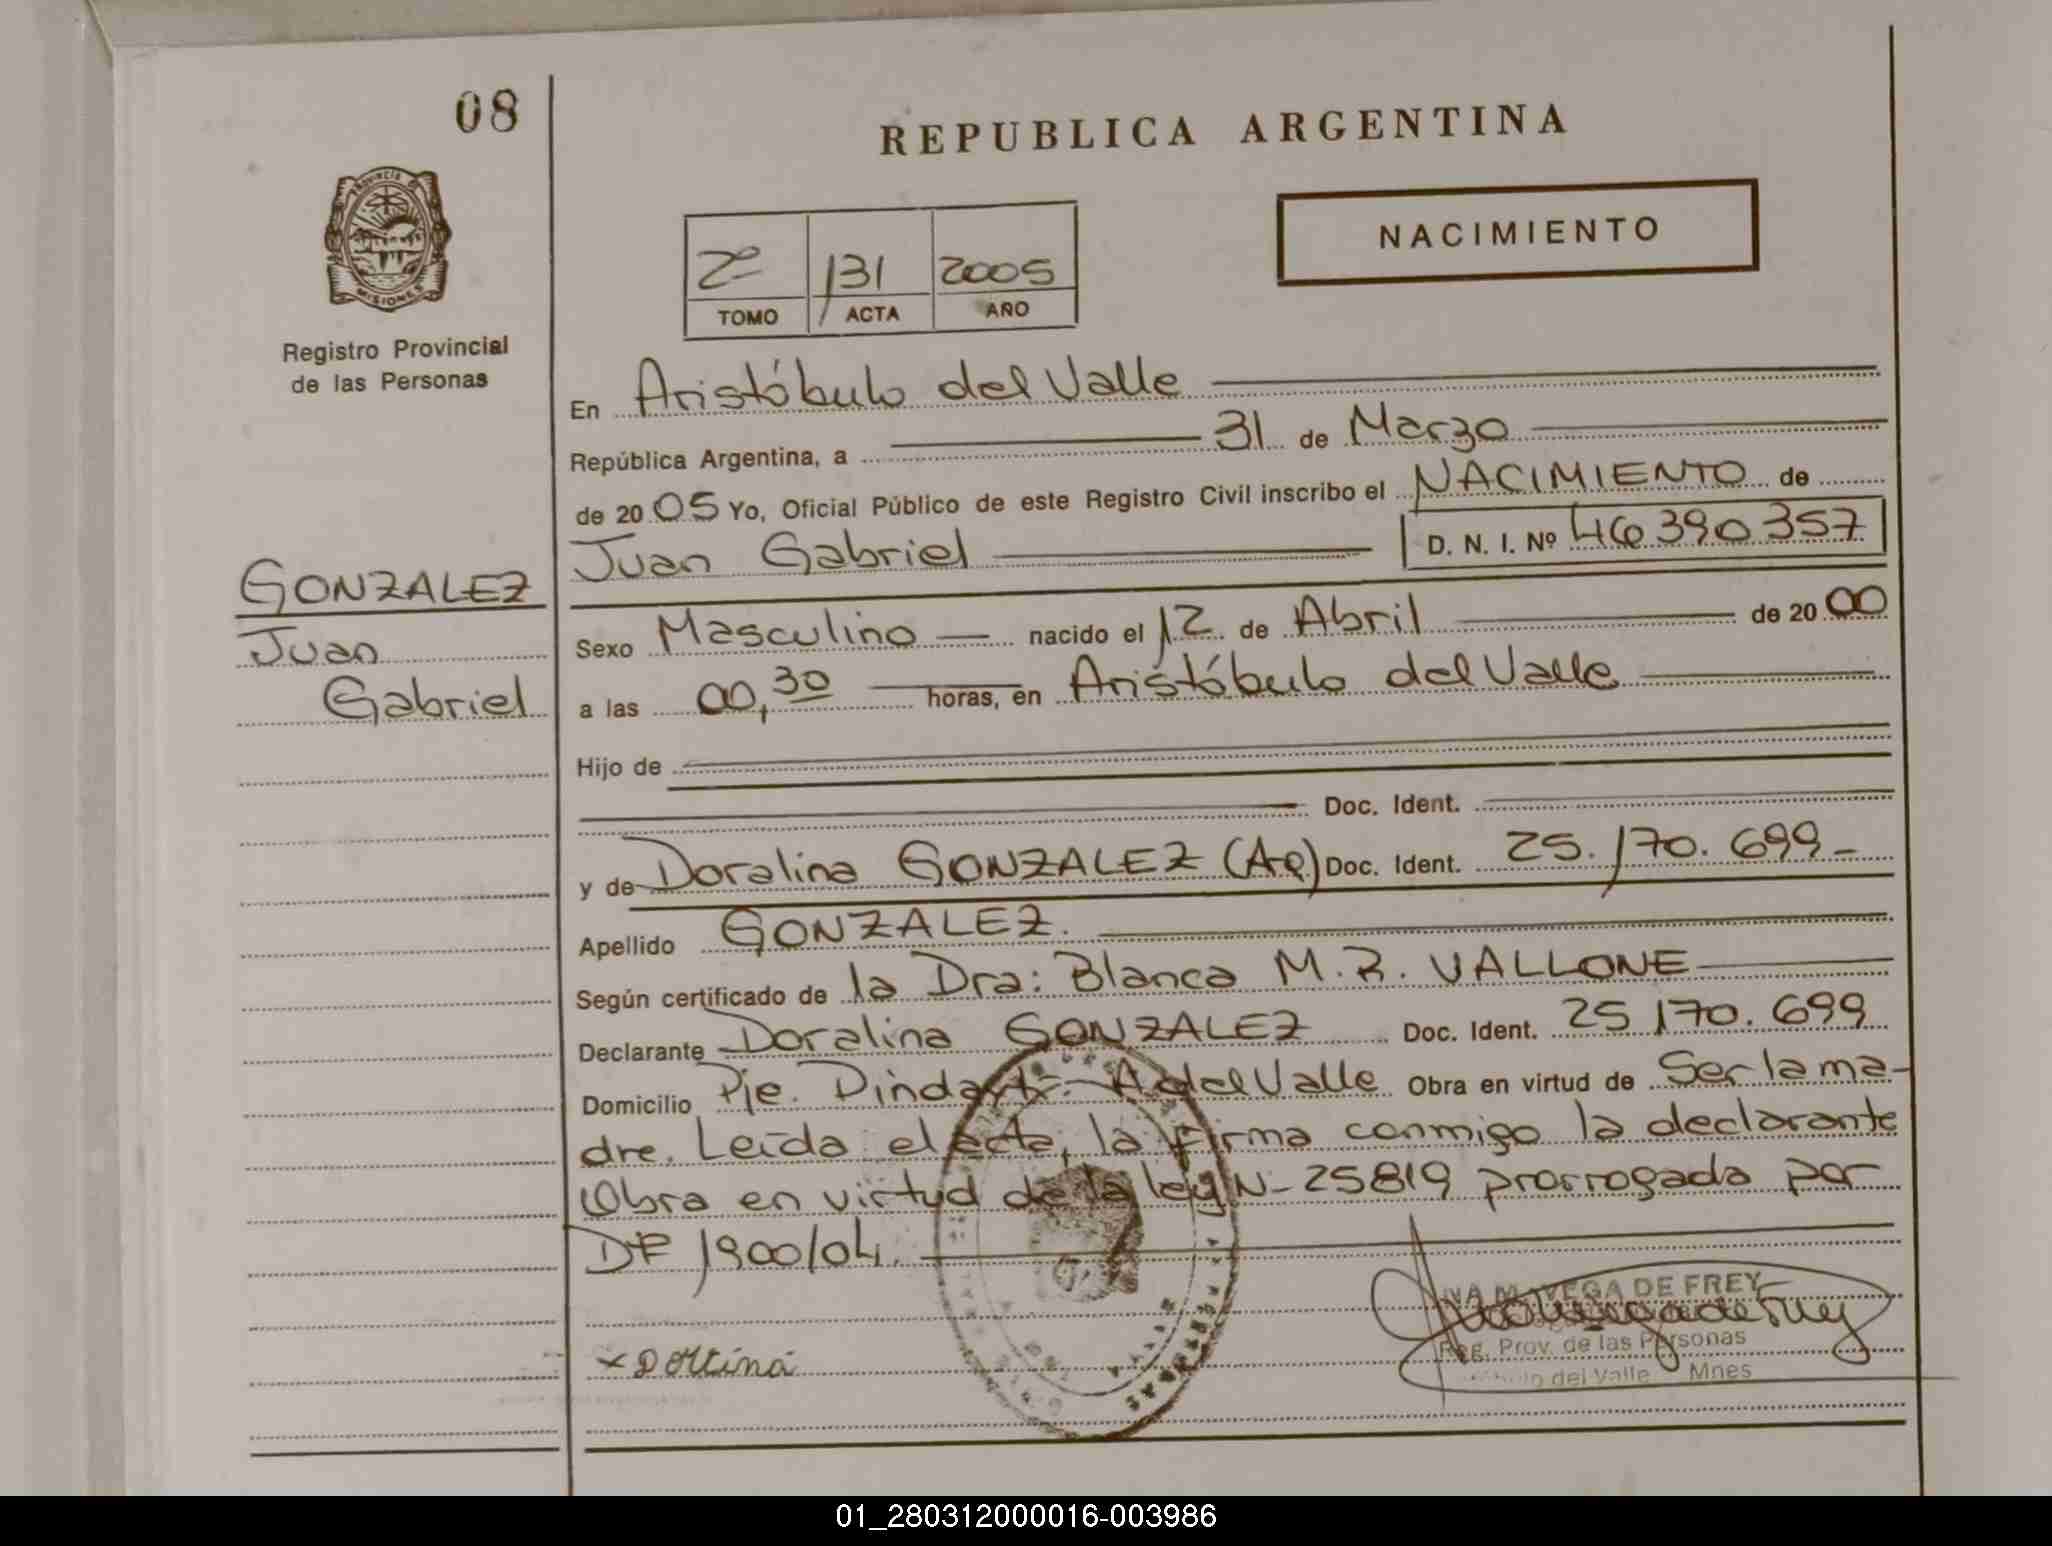 08
REPUBLICA ARGENTINA
PROVINCIA DE
MISIONES
Registro Provincial
de las Personas
2º 131 2005
TOMO ACTA AÑO
NACIMIENTO
En Aristóbulo del Valle
República Argentina, a 31 de Marzo
de 20 05 Yo, Oficial Público de este Registro Civil inscribo el NACIMIENTO de
Juan Gabriel D. N. I. Nº 46 390 357
GONZALEZ
Juan
Gabriel
Sexo Masculino nacido el 12 de Abril de 20 00
a las 00,30 horas, en Aristóbulo del Valle
Hijo de
Doc. Ident.
y de Doralina GONZALEZ (Ar) Doc. Ident. 25.170.699-
Apellido GONZALEZ.
Según certificado de la Dra: Blanca M. R. VALLONE
Declarante Doralina GONZALEZ Doc. Ident. 25 170.699
Domicilio Pje. Dindart - A del Valle Obra en virtud de Ser la ma-
dre. Leída el acta, la firma conmigo la declarante
Obra en virtud de la ley N- 25819 prorrogada por
DF 1900/04.
VEGA DE FREY
Reg. Prov. de las Personas
del Valle Mnes
01_280312000016-003986